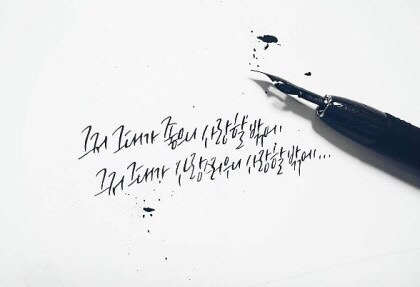 그저 그대가 좋으니 사랑할 밖에.
그저 그대가 사랑스러우니 사랑할 밖에...